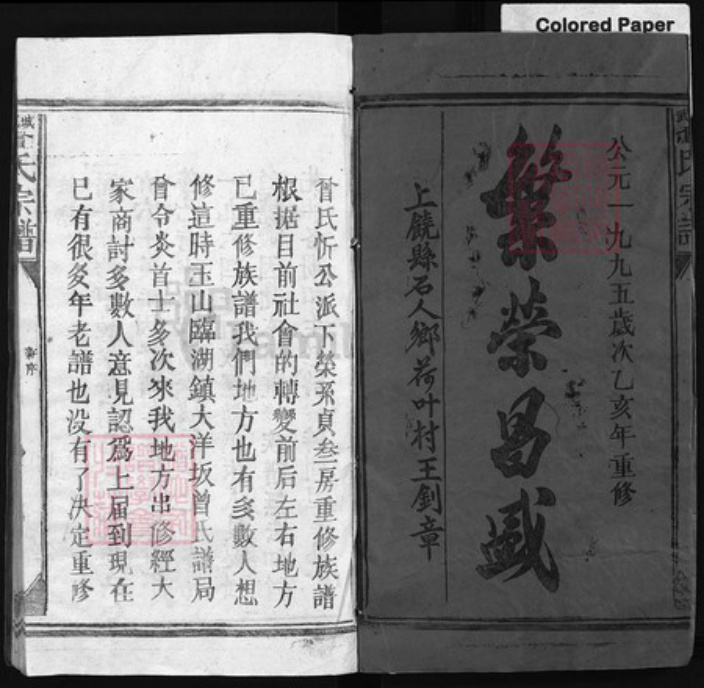 Colored Paper
公元一九九五歲次乙亥年重修
繁榮昌盛
上饒縣石人鄉荷叶村王釗章
曾氏忻公派下榮系貞叁房重修族譜
根据目前社會的轉變前后左右地方
已重修族譜我們地方也有多數人想
修這時玉山臨湖鎮大洋坂曾氏譜局
曾令炎首士多次來我地方出修經大
家商討多數人意見認爲上届到現在
已有很多年老譜也没有了决定重修
氏宗譜
序